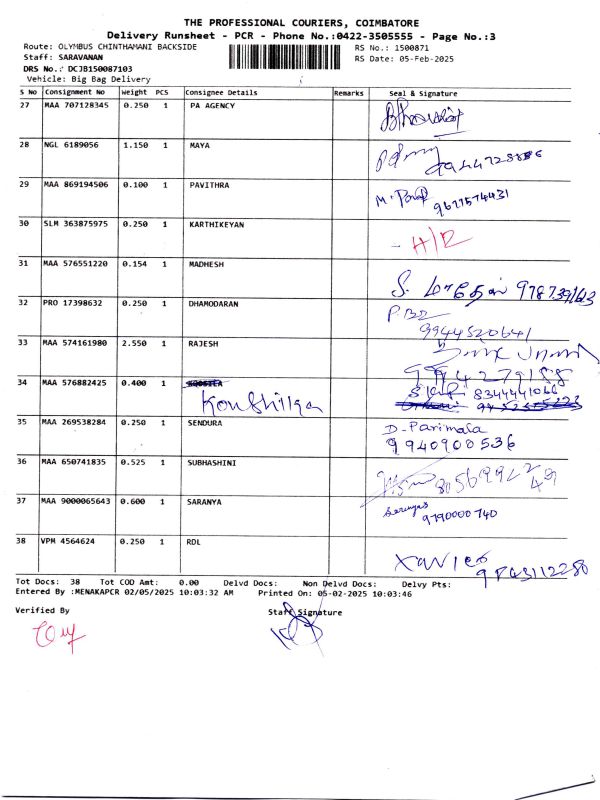 THE PROFESSIONAL COURIERS, COIMBATORE
Delivery Runsheet - PCR - Phone No.:0422-3505555 - Page No.:3
Route: OLYMBUS CHINTHAMANI BACKSIDE RS No.: 1500871
Staff: SARAVANAN RS Date: 05-Feb-2025
DRS No.: DCJB150087103
Vehicle: Big Bag Delivery
S No Consignment No Weight PCS Consignee Details Remarks Seal & Signature
27 MAA 707128345 0.250 1 PA AGENCY
28 NGL 6189056 1.150 1 MAYA
29 MAA 869194506 0.100 1 PAVITHRA
9677574431
30 SLM 363875975 0.250 1 KARTHIKEYAN - H/R
31 MAA 576551220 0.154 1 MADHESH
S.
32 PRO 17398632 0.250 1 DHAMODARAN
9944520641
33 MAA 574161980 2.550 1 RAJESH
9994279188
34 MAA 576882425 0.400 1
8344441066
35 MAA 269538284 0.250 1 SENDURA D-Parimala
9940900536
36 MAA 650741835 0.525 1 SUBHASHINI
37 MAA 9000065643 0.600 1 SARANYA
9790000740
38 VPM 4564624 0.250 1 RDL Xavier
Tot Docs: 38 Tot COD Amt: 0.00 Delvd Docs: Non Delvd Docs: Delvy Pts:
Entered By :MENAKAPCR 02/05/2025 10:03:32 AM Printed On: 05-02-2025 10:03:46
Verified By Staff Signature